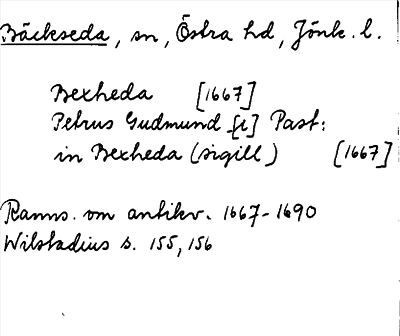 Bäckseda, sn, Östra hd, Jönk. l.
Bexheda [1667]
Petrus Gudmund [i] Past:
in Bexheda (sigill) [1667]
Ranns. om antikv. 1667-1690
Wilstadius s. 155, 156